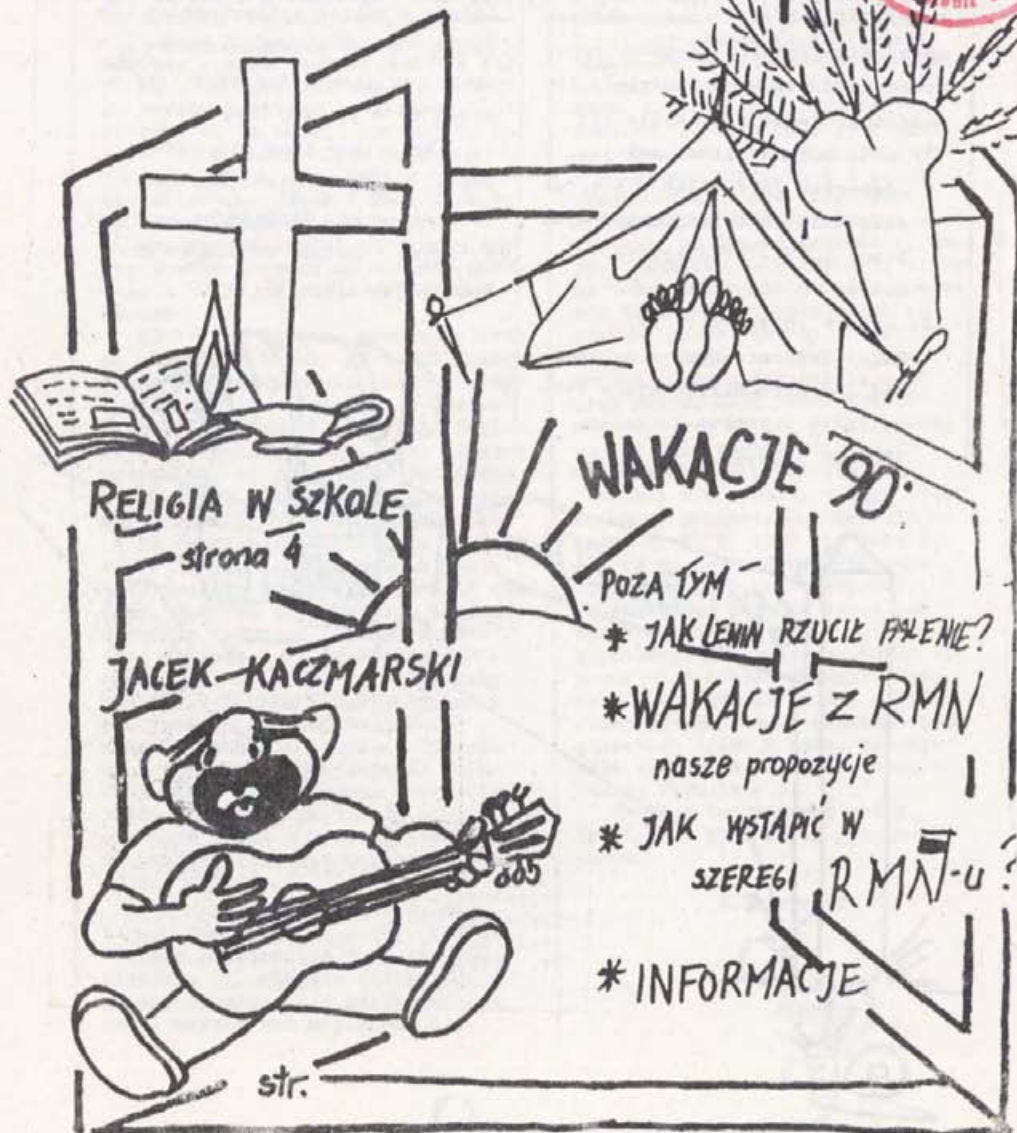 RELIGIA W SZKOLE
strona 4
JACEK KACZMARSKI
str.
WAKACJE 90.
POZA TYM -
* JAK LENIN RZUCIŁ PALENIE?
* WAKACJE Z RMN
nasze propozycje
* JAK WSTĄPIĆ W
SZEREGI RMN-u ?
* INFORMACJE